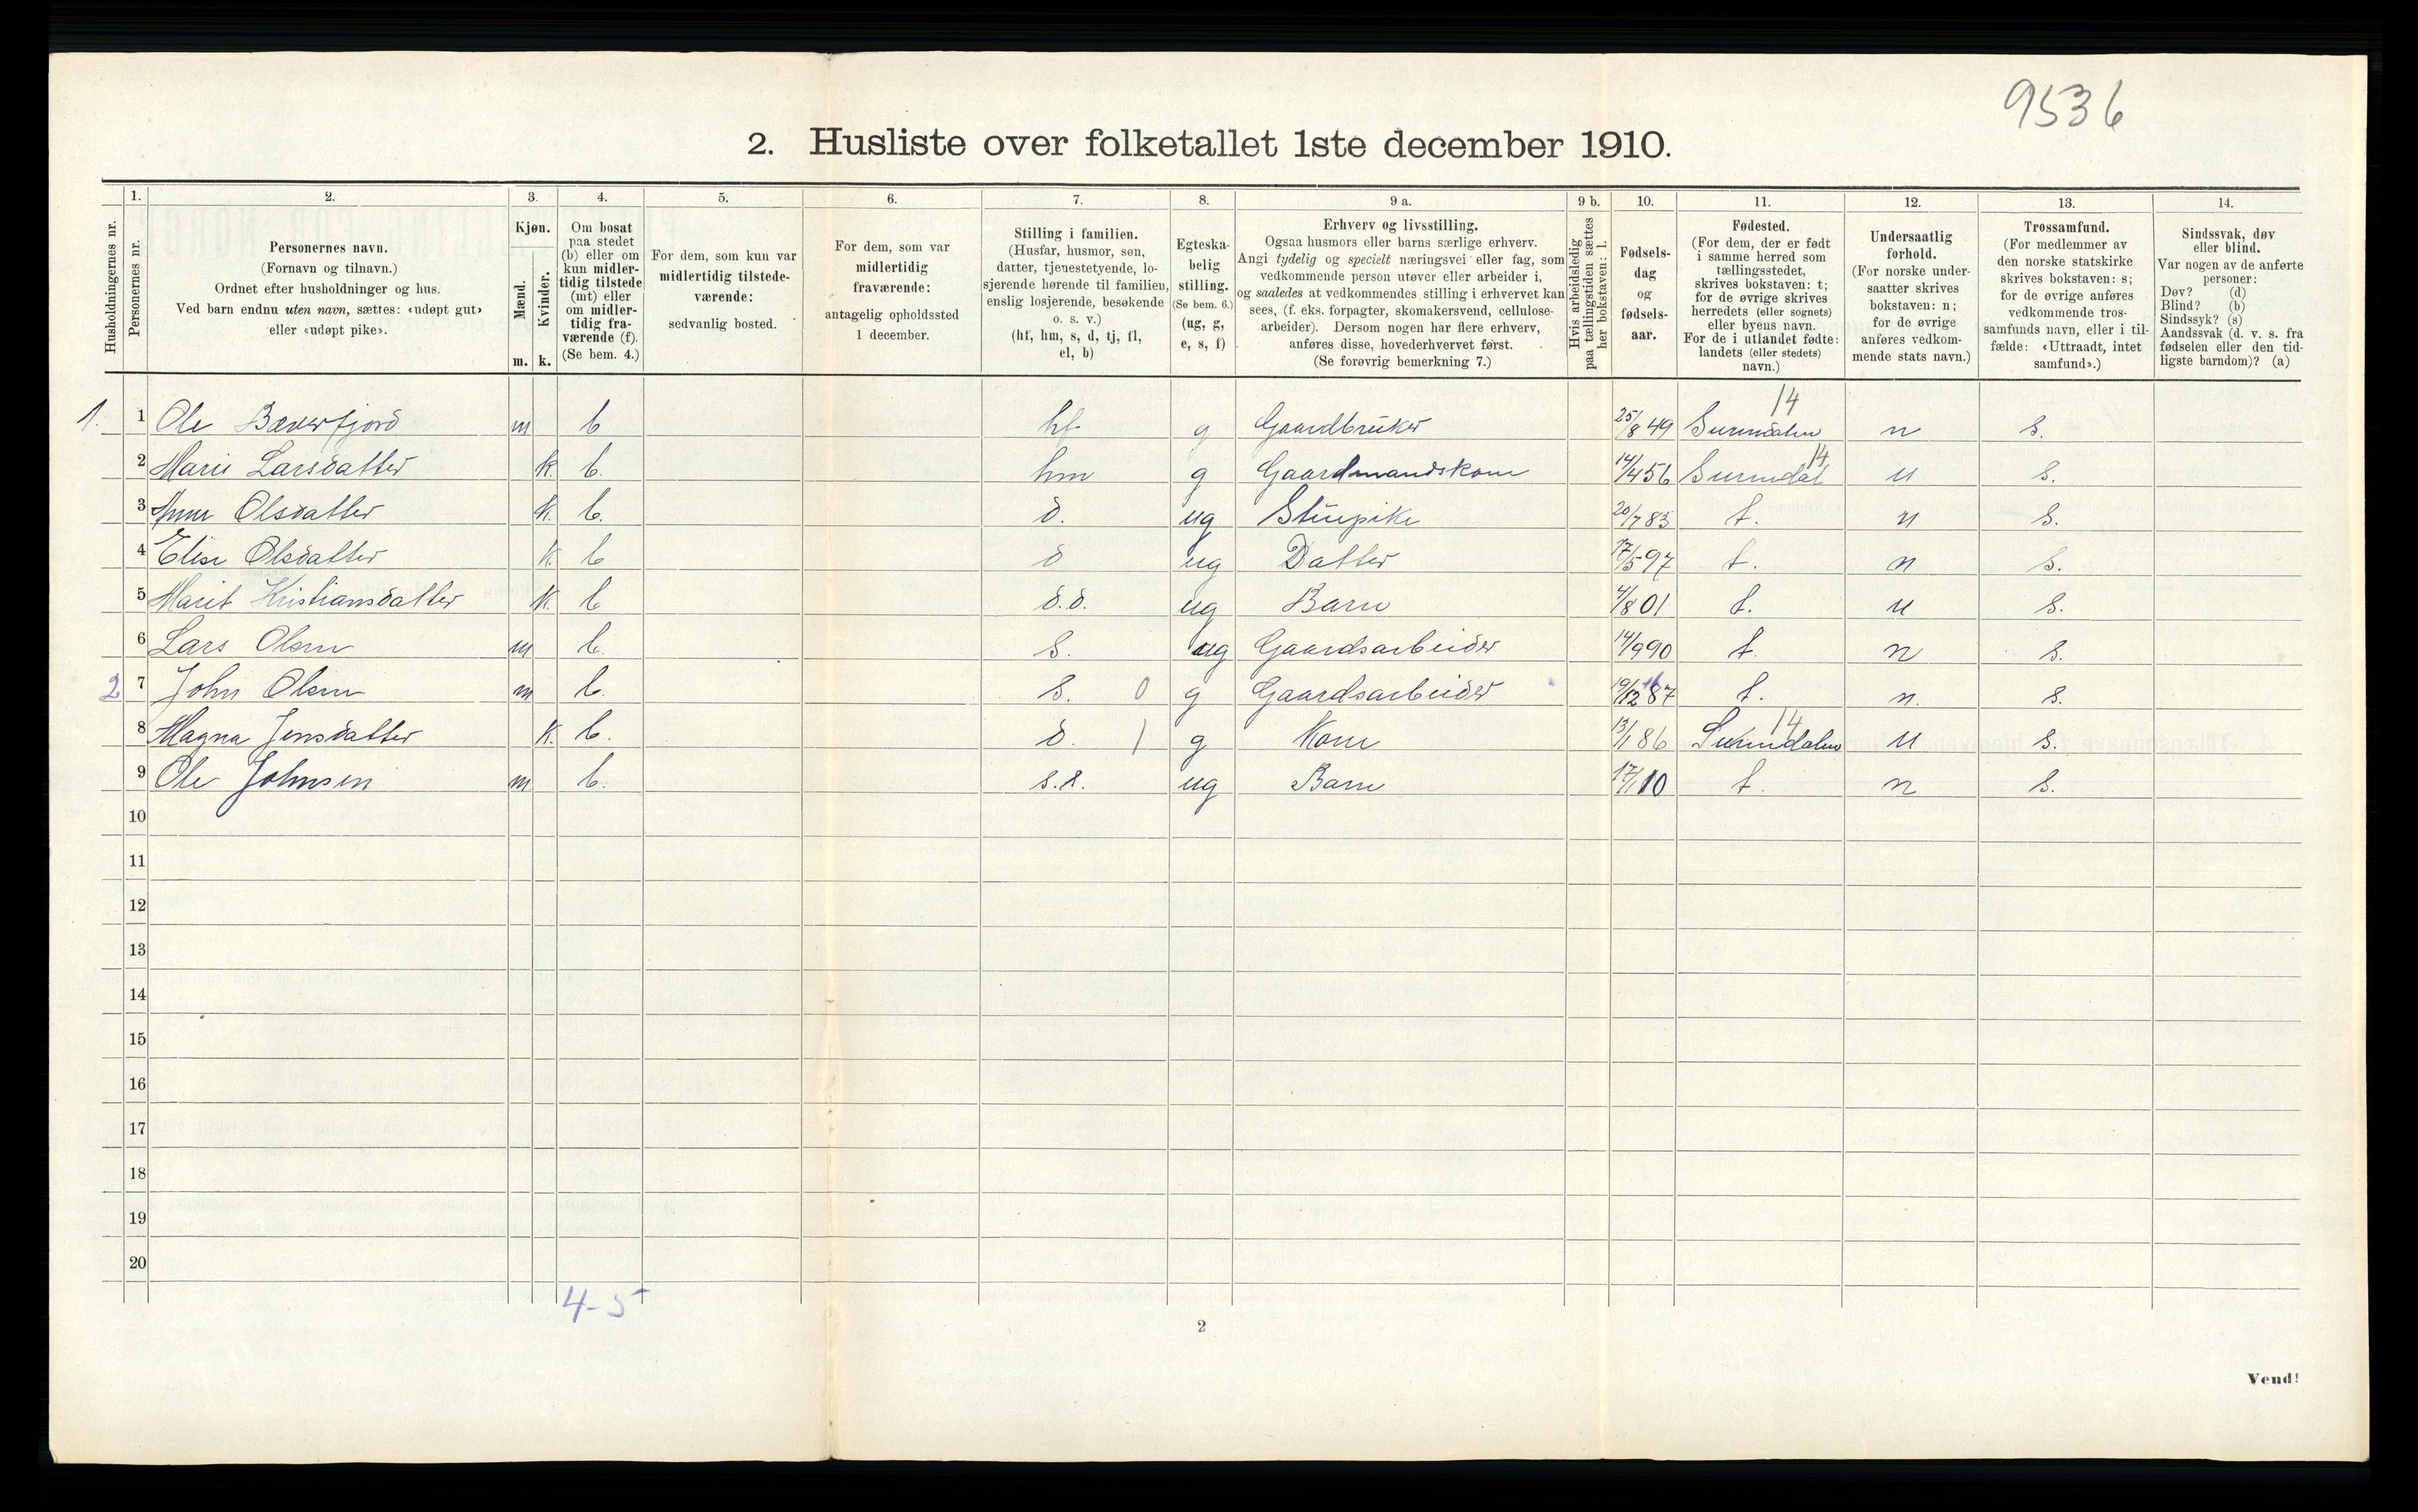 9536
2. Husliste over folketallet 1ste december 1910.
1. 2. 3. 4. 5. 6. 7. 8. 9 a. 9 b. 10. 11. 12. 13. 14.
Husholdningernes nr.
Personernes nr.
Personernes navn.
(Fornavn og tilnavn.)
Ordnet efter husholdninger og hus.
Ved barn endnu uten navn, sættes: «udøpt gut»
eller «udøpt pike».
Kjøn.
Mænd.
Kvinder.
m. k.
Om bosat
paa stedet
(b) eller om
kun midler-
tidig tilstede
(mt) eller
om midler-
tidig fra-
værende (f).
(Se bem. 4.)
For dem, som kun var
midlertidig tilstede-
værende:
sedvanlig bosted.
For dem, som var
midlertidig
fraværende:
antagelig opholdssted
1 december.
Stilling i familien.
(Husfar, husmor, søn,
datter, tjenestetyende, lo-
sjerende hørende til familien,
enslig losjerende, besøkende
o. s. v.)
(hf, hm, s, d, tj, fl,
el, b)
Egteska-
belig
stilling.
(Se bem. 6.)
(ug, g,
e, s, f)
Erhverv og livsstilling.
Ogsaa husmors eller barns særlige erhverv.
Angi tydelig og specielt næringsvei eller fag, som
vedkommende person utøver eller arbeider i,
og saaledes at vedkommendes stilling i erhvervet kan
sees, (f. eks. forpagter, skomakersvend, cellulose-
arbeider). Dersom nogen har flere erhverv,
anføres disse, hovederhvervet først.
(Se forøvrig bemerkning 7.)
Hvis arbeidsledig
paa tællingstiden sættes
her bokstaven: l.
Fødsels-
dag
og
fødsels-
aar.
Fødested.
(For dem, der er født
i samme herred som
tællingsstedet,
skrives bokstaven: t;
for de øvrige skrives
herredets (eller sognets)
eller byens navn.
For de i utlandet fødte:
landets (eller stedets)
navn.)
Undersaatlig
forhold.
(For norske under-
saatter skrives
bokstaven: n;
for de øvrige
anføres vedkom-
mende stats navn.)
Trossamfund.
(For medlemmer av
den norske statskirke
skrives bokstaven: s;
for de øvrige anføres
vedkommende tros-
samfunds navn, eller i til-
fælde: «Uttraadt, intet
samfund».)
Sindssvak, døv
eller blind.
Var nogen av de anførte
personer:
Døv? (d)
Blind? (b)
Sindssyk? (s)
Aandssvak (d. v. s. fra
fødselen eller den tid-
ligste barndom)? (a)
14
1. 1 Ole Bæverfjord m b hf g Gaardbruker 25/8 49 Surendalen n s.
2 Marie Larsdatter k. b. hm g Gaardmandskone 14/4 56 Surendal 14 n s.
3 Anne Olsdatter k. b. d. ug Stuepike 20/7 83 t. n s.
4 Elise Olsdatter k. b d ug Datter 17/5 97 t. n s.
5 Marit Kristiansdatter k. b d.d. ug Barn 4/8 01 t. n s.
6 Lars Olsen m b. s. ug Gaardsarbeider 14/9 90 t. n s.
2 7 John Olsen m b. s. 0 g Gaardsarbeider 19/12 87 t. n. s.
8 Magna Jensdatter k. b. d. 1 g Kone 13/1 86 Surendalen 14 n s.
9 Ole Johnsen m b. s.s. ug Barn 17/1 10 t. n s.
10
11
12
13
14
15
16
17
18
19
20
4-5
2
Vend!